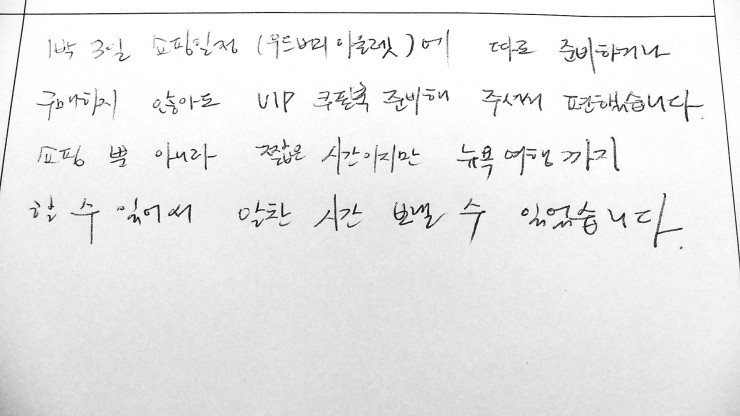 1박 3일 쇼핑일정 (우드버리 아울렛)에 따로 준비하거나
구매하지 않아도 VIP 쿠폰북 준비해 주셔서 편했습니다.
쇼핑 뿐 아니라 짧은 시간이지만 뉴욕여행까지
할 수 있어서 알찬 시간 보낼 수 있었습니다.